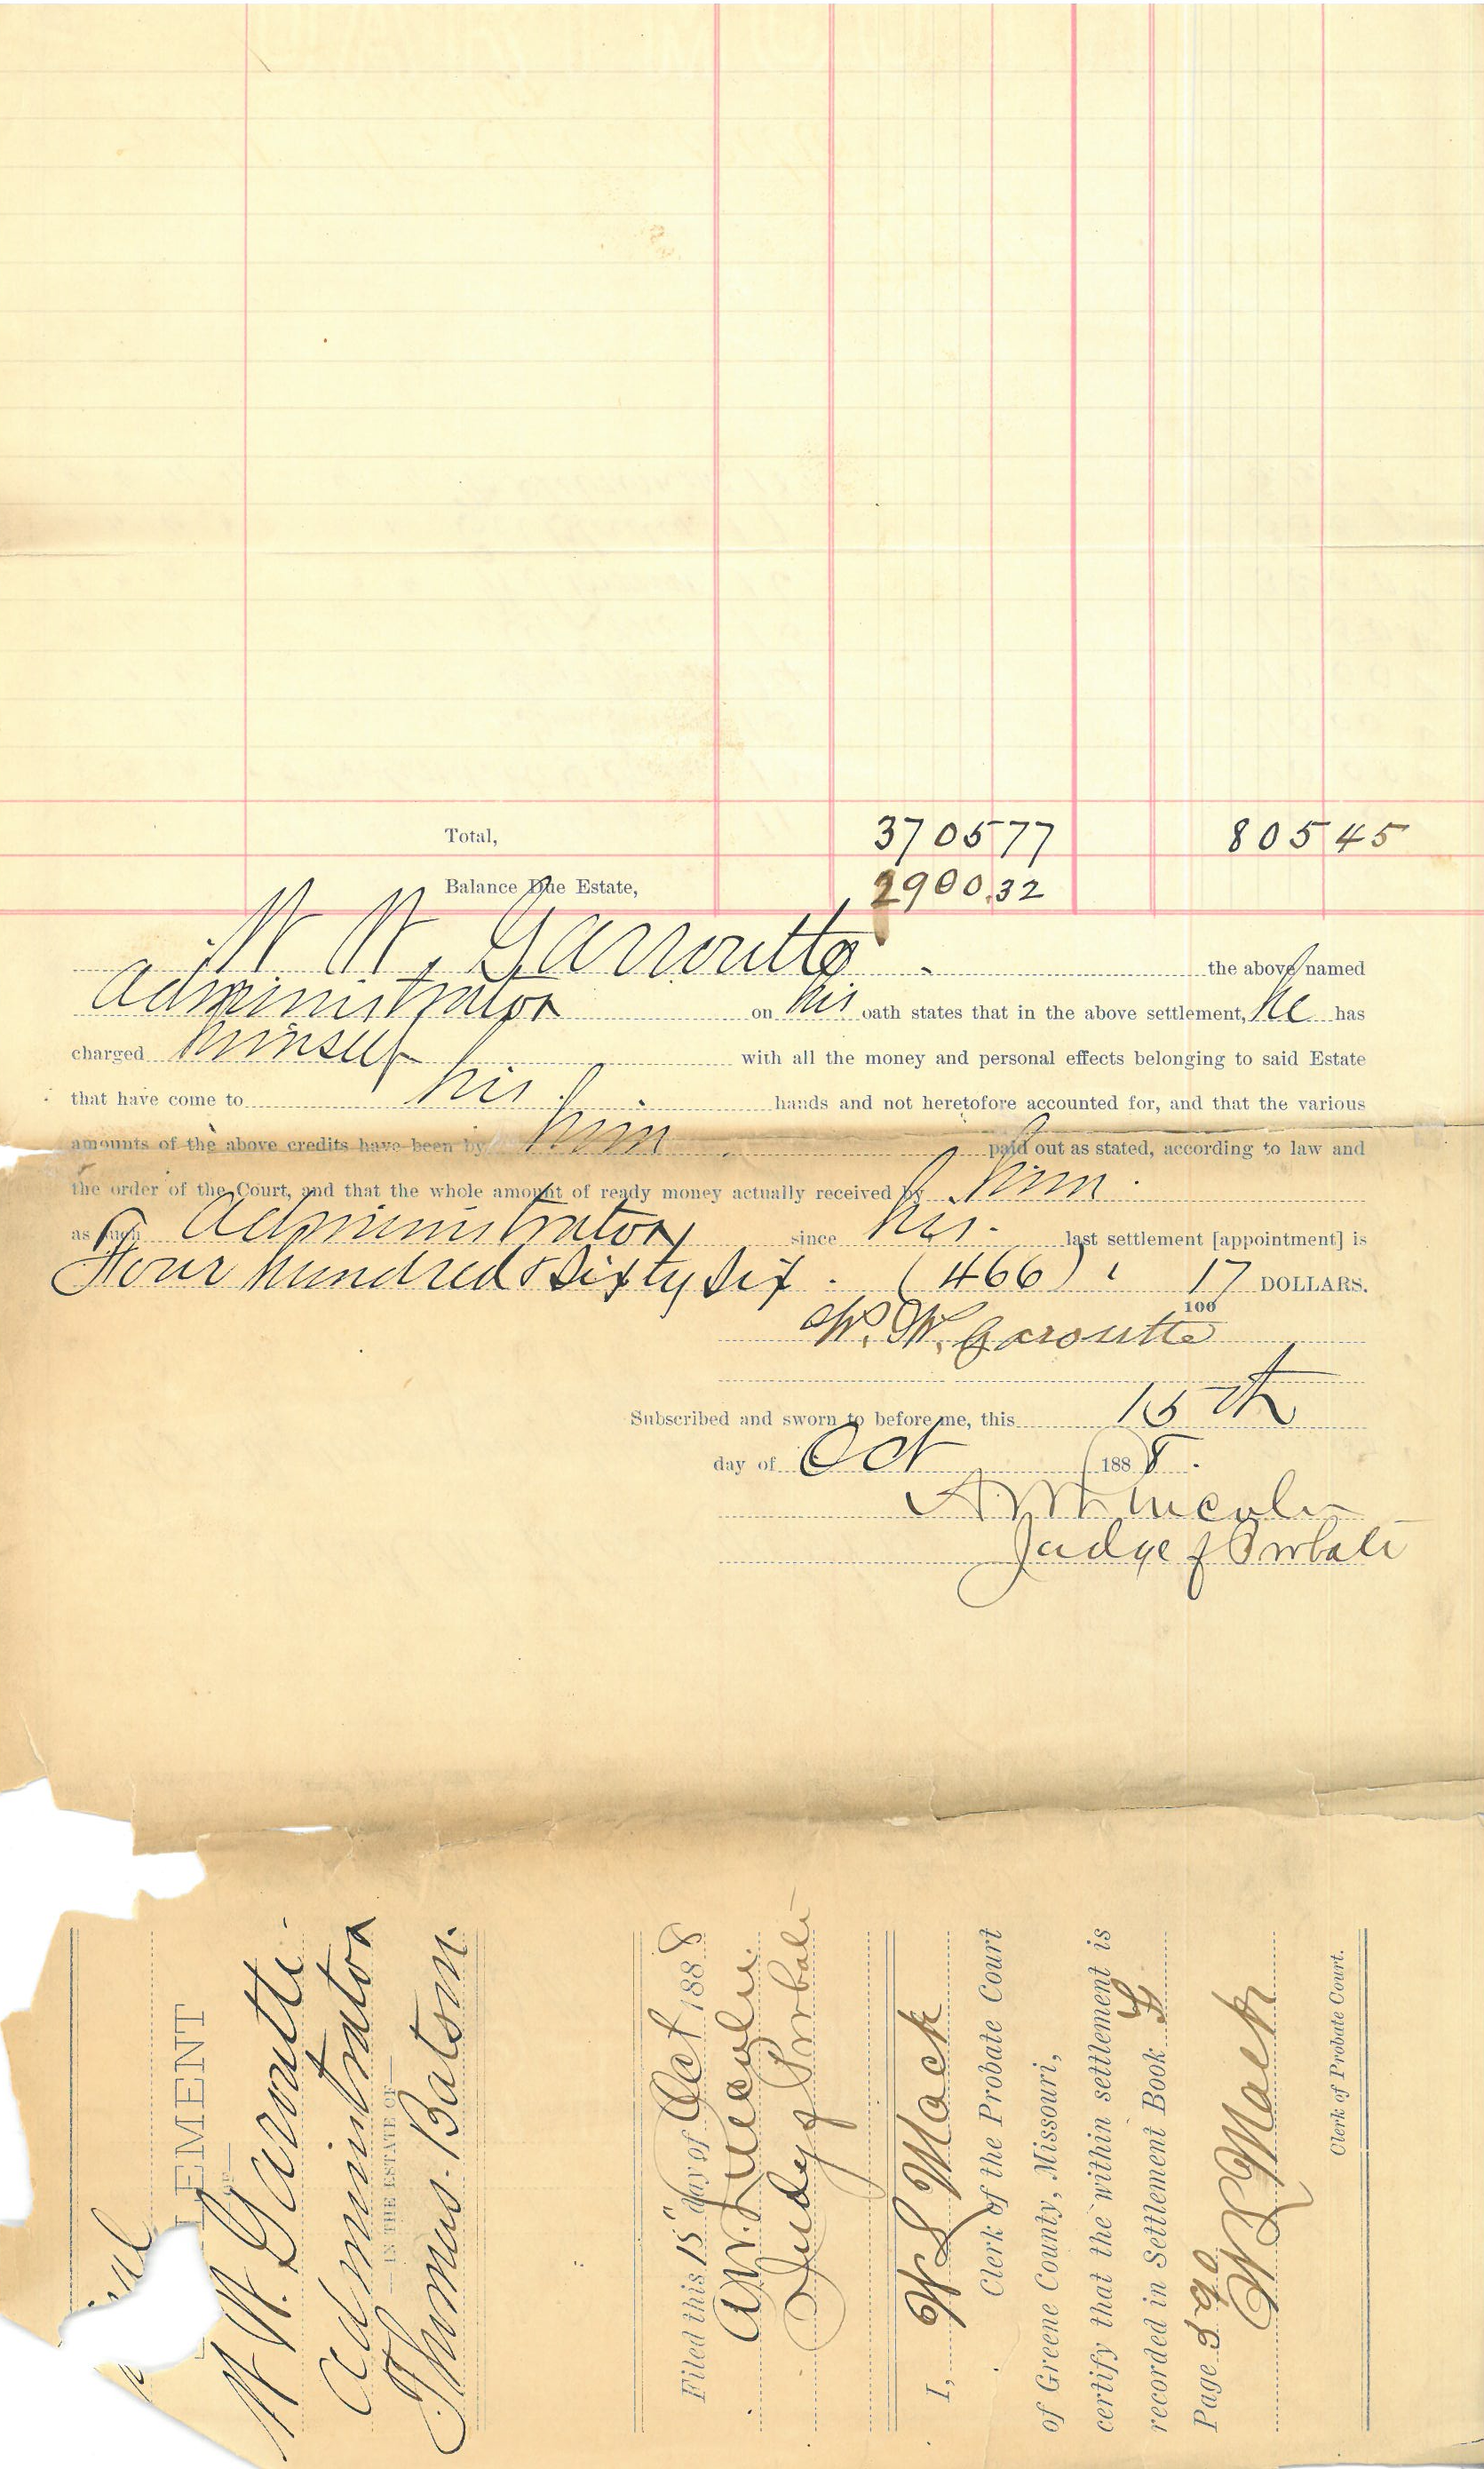 Total, 3705 77 805 45
Balance Due Estate, 2900.32
W W. Garroutte the above named
Administrator on his oath states that in the above settlement, he has
charged himself with all the money and personal effects belonging to said Estate
that have come to his hands and not heretofore accounted for, and that the various
amounts of the above credits have been by him paid out as stated, according to law and
the order of the Court, and that the whole amount of ready money actually received by him
as such Administrator since his last settlement [appointment] is
Four hundred & Sixty Six (466) 17/100 DOLLARS.
W. W. Garoutte
Subscribed and sworn to before me, this 15th
day of Oct 1888.
A W Lincoln
Judge of Probate
LEMENT
OF
W W. Garroutte
Administrator
IN THE ESTATE OF
Thomas Batson.
Filed this 15" day of Oct 1888
A W. Lincoln
Judge of Probate
I, W L Mack
Clerk of the Probate Court
of Greene County, Missouri,
certify that the within settlement is
recorded in Settlement Book
Page 390
W L Mack
Clerk of Probate Court.